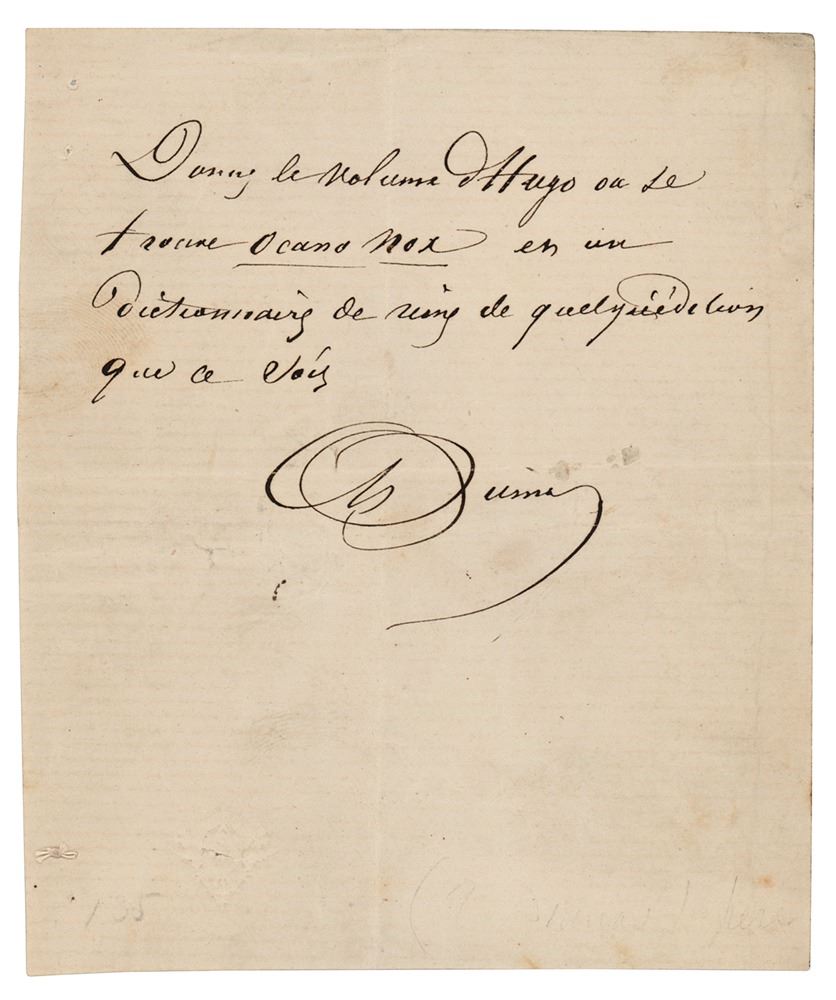 Donnez le volume d'Hugo ou se
trouve Oceano Nox et un
dictionnaire de rime de quelqu'édition
que ce soit
A Dumas
135
(A. Dumas père